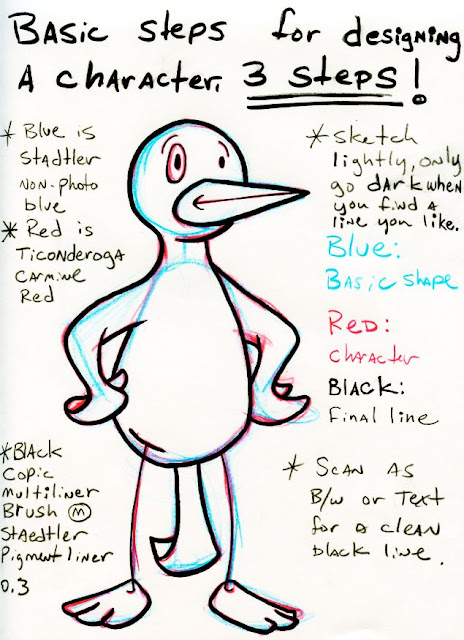 Basic steps for designing
A character. 3 steps!
* Blue is
Stadtler
non-photo
blue
* Red is
Ticonderoga
Carmine
Red
* Sketch
lightly, only
go dark when
you find a
line you like.
Blue:
Basic shape
Red:
character
Black:
Final line
* Black
Copic
multiliner
Brush M
Staedtler
Pigment liner
0.3
* Scan as
B/w or Text
for a clean
black line.